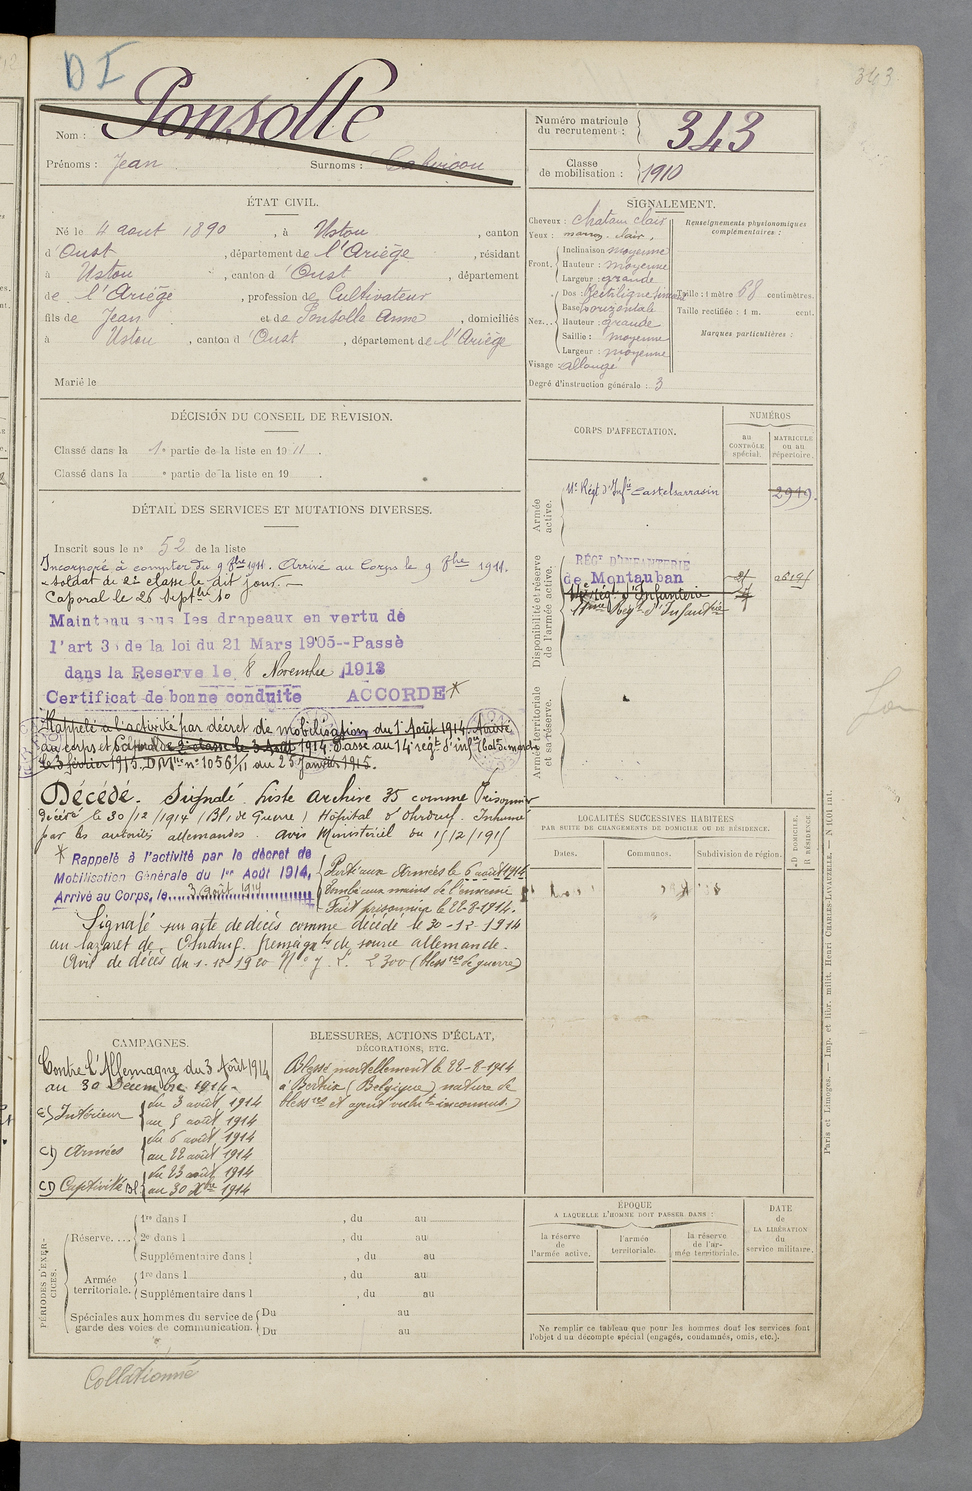 D I
343
Ponsolle
Nom :
Prénoms : Jean Surnoms :
Numéro matricule
du recrutement : 343
Classe
de mobilisation : 1910
ÉTAT CIVIL.
Né le 4 aout 1890, à Ustou, canton
d'Oust, département de l'Ariège, résidant
à Ustou, canton d'Oust, département
de l'Ariège, profession de Cultivateur
fils de Jean et de Ponsolle Anne, domiciliés
à Ustou, canton d'Oust, département de l'Ariège
Marié le
SIGNALEMENT.
Cheveux : chatain clair
Yeux : marron clair,
Front. Inclinaison moyenne
Hauteur : moyenne
Largeur : grande
Nez... Dos : Rectiligne
Base horizontale
Hauteur : grande
Saillie : moyenne
Largeur : moyenne
Visage : allongé
Degré d'instruction générale : 3
Renseignements physionomiques
complémentaires :
Taille : 1 mètre 68 centimètres.
Taille rectifiée : 1 m. cent.
Marques particulières :
DÉCISION DU CONSEIL DE RÉVISION.
Classé dans la 1e partie de la liste en 1911.
Classé dans la e partie de la liste en 19
DÉTAIL DES SERVICES ET MUTATIONS DIVERSES.
Inscrit sous le n° 52 de la liste
Incorporé à compter du 9 8bre 1911. Arrivé au Corps le 9 8bre 1911.
soldat de 2e classe le dit jour.
Caporal le 26 Septbre
Maintenu sous les drapeaux en vertu de
l'art 33 de la loi du 21 Mars 1905--Passé
dans la Reserve le 8 Novembre 1913
Certificat de bonne conduite ACCORDE *
Rappelé à l'activité par décret de mobilisation du 1er Août 1914. Arrivé
au corps et soldat de 2e classe le 3 Août 1914. Passe au 14e régt d'infie
le 3 février 1915. D. Mlle n° 1056 1/11 du 25 Janvier 1915.
Décédé. Signalé Liste archive 35 comme Prisonnier
décédé le 30/12/1914 (Bl. de Guerre) Hôpital d'Ohrdruf. Inhumé
par les autorités allemandes. avis Ministériel du
* Rappelé à l'activité par le décret de
Mobilisation Générale du 1er Août 1914,
Arrivé au Corps, le 3 août 1914
Parti aux Armées le 6 août 1914
Tombé aux mains de l'ennemi
Fait prisonnier le 22-8-1914.
Signalé sur acte de décès comme décédé le 30-12-1914
au lazaret de Ohrdruf. Renseignts de source allemande.
Avis de décès du 1-12-1920 N° 2300 (blessres de guerre)
CORPS D'AFFECTATION.
NUMÉROS
au
CONTRÔLE
spécial.
MATRICULE
ou au
répertoire.
Armée
active.
11e Régt d'Infie Castelsarrasin 2949.
Disponibilité et réserve
de l'armée active.
RÉGt D'INFANTERIE
de Montauban
11e Régt d'Infanterie
Régt d'Infanterie
Armée territoriale
et sa réserve.
LOCALITÉS SUCCESSIVES HABITÉES
PAR SUITE DE CHANGEMENTS DE DOMICILE OU DE RÉSIDENCE.
Dates. Communes. Subdivision de région.
D DOMICILE,
R RÉSIDENCE.
CAMPAGNES.
Contre l'Allemagne du 3 Août 1914
au 30 Décembre 1914.
Intérieur du 3 août 1914
au 5 août 1914
Armées du 6 août 1914
au 22 août 1914
Captivité Bl du 23 août 1914
au 30 Xbre 1914
BLESSURES, ACTIONS D'ÉCLAT,
DÉCORATIONS, ETC.
Blessé mortellement le 22-8-1914
à Bertrix (Belgique) nature de
blessres et agent vulnt inconnus)
PÉRIODES D'EXERCICES.
Réserve.... 1re dans l , du au
2e dans l , du au
Supplémentaire dans l , du au
Armée
territoriale. 1re dans l , du au
Supplémentaire dans l , du au
Spéciales aux hommes du service de
garde des voies de communication. Du au
Du au
ÉPOQUE
A LAQUELLE L'HOMME DOIT PASSER DANS :
la réserve
de
l'armée active.
l'armée
territoriale.
la réserve
de l'armée territoriale.
DATE
de
LA LIBÉRATION
du
service militaire.
Ne remplir ce tableau que pour les hommes dont les services font
l'objet d'un décompte spécial (engagés, condamnés, omis, etc.).
Paris et Limoges. — Imp. et libr. milit. Henri CHARLES-LAVAUZELLE. — N° 1001 int.
Collationné